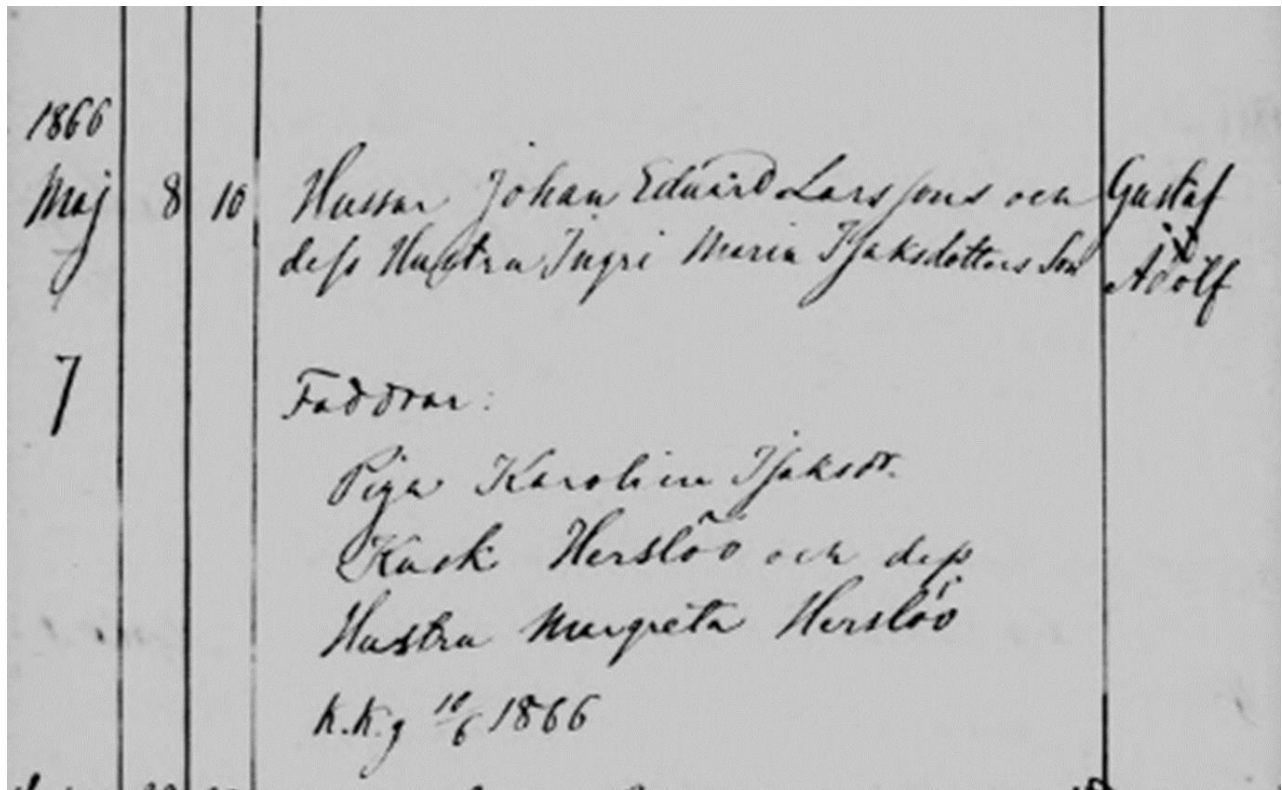 1866
Maj 8 10 Hussar Johan Eduard Larssons och Gustaf
dess Hustru Ingri Maria Isaksdotters Son Adolf
7
Faddrar:
Piga Karolina Isaksdr.
Kusk Herslöv och dess
Hustru Margreta Herslöv
K.K.g 10/6 1866